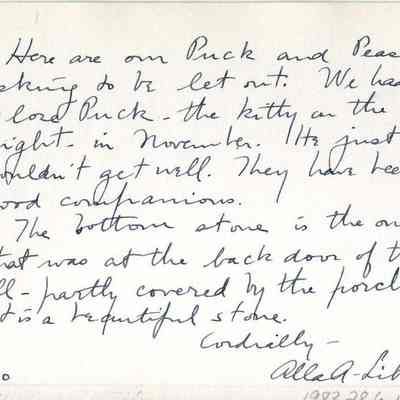 Here are our Puck and Peas
sking to be let out. We had
lose Puck - the kitty on the
ight - in November. He just
ouldn't get well. They have bee
ood companions.
The bottom stone is the on
hat was at the back door of t
ll - partly covered by the porch
t is a beautiful stone.
Cordially -
Alla A - Lib
1982.28.6